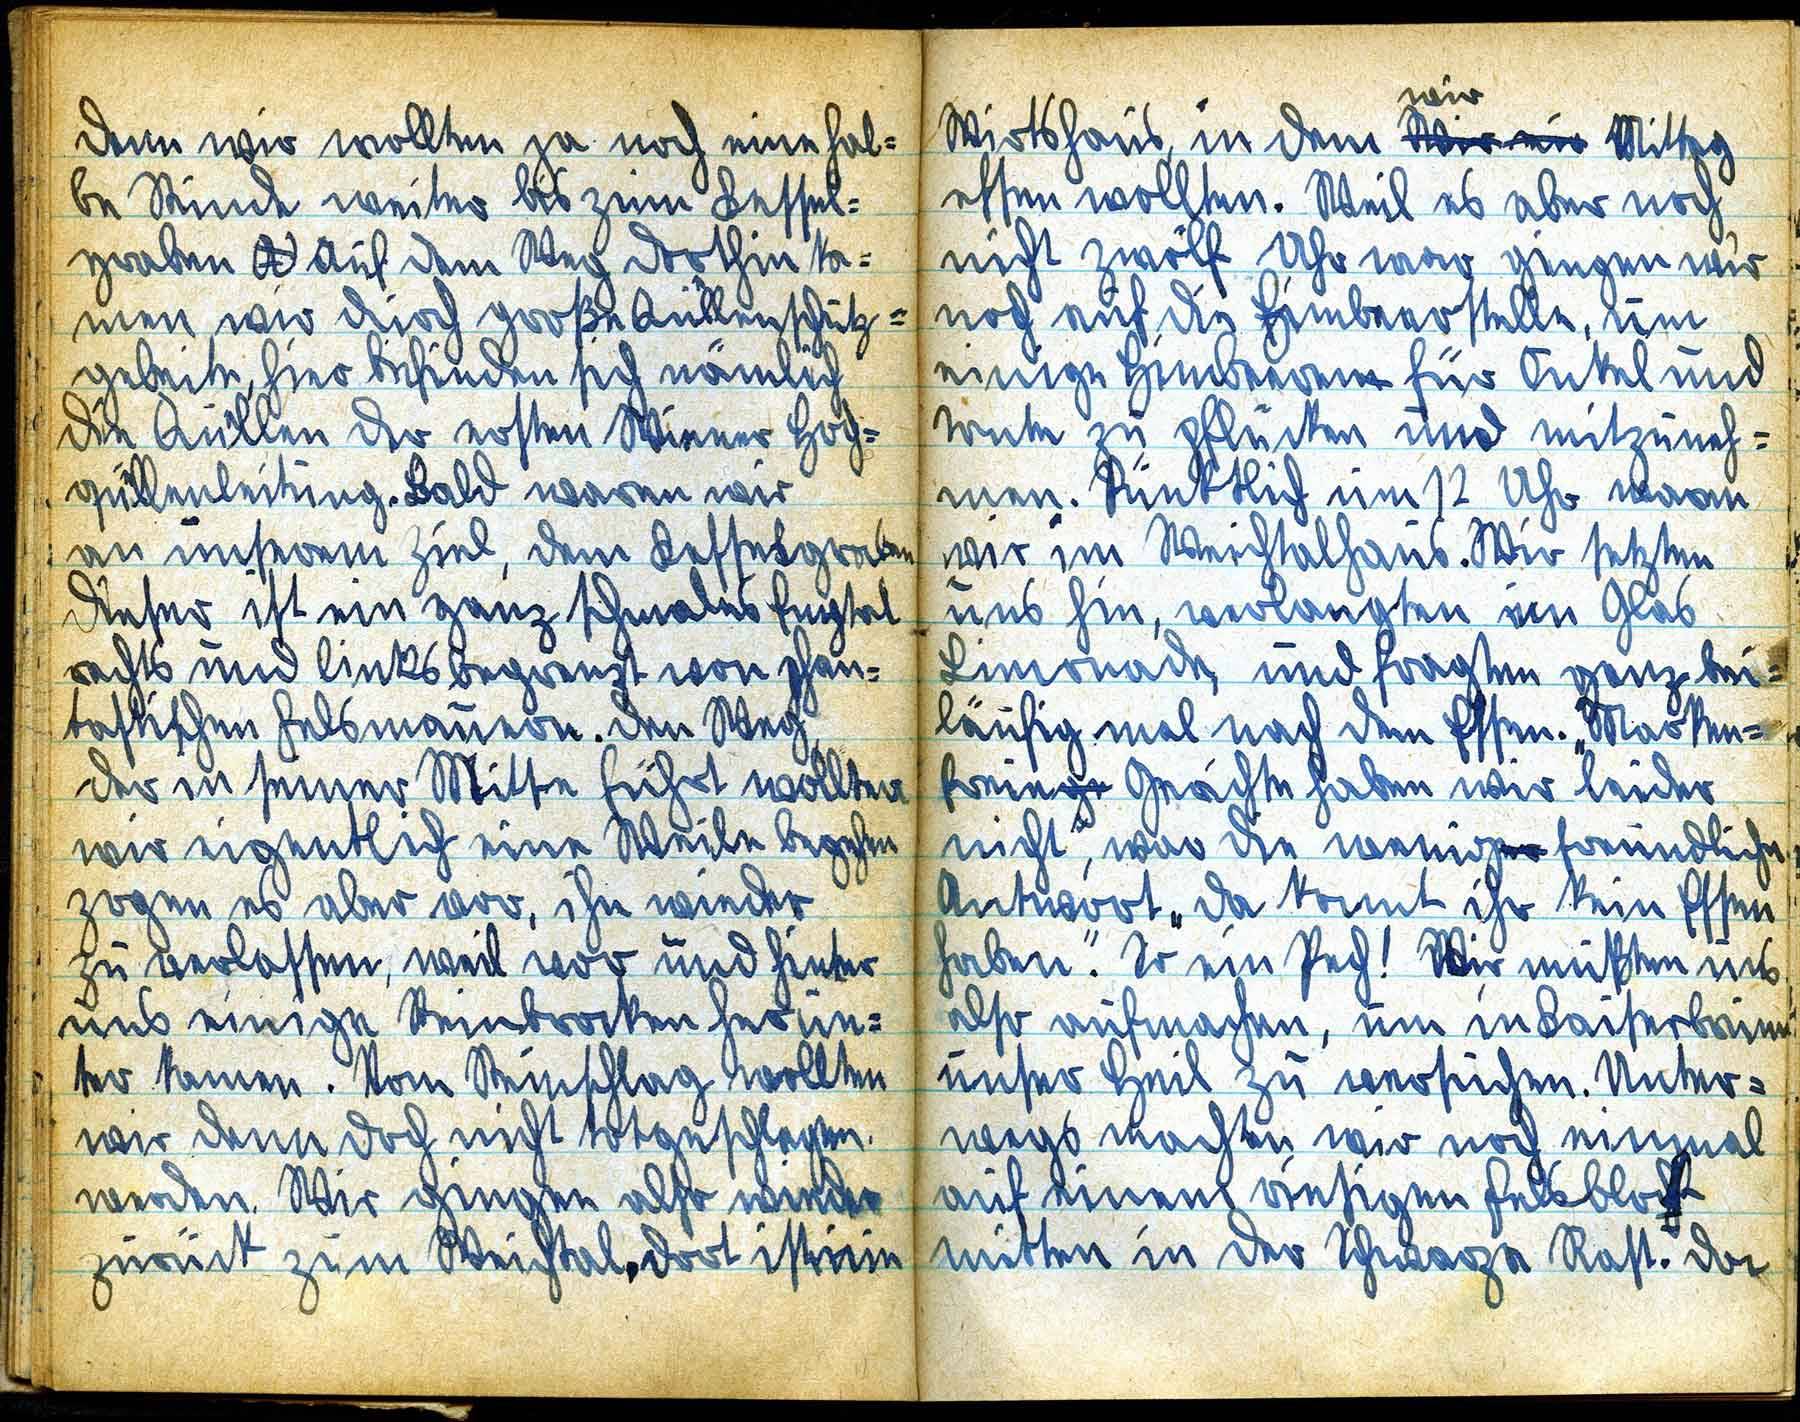 denn wir wollten ja noch eine hal=
be Stunde weiter bis zum Kessel=
graben Auf dem Weg dorthin ka=
men wir durch große Quellenschutz=
gebiete, hier befinden sich nämlich
die Quellen der ersten Wiener Hoch=
quellenleitung. Bald waren wir
an unserem Ziel, dem Kesselgraben
Dieser ist ein ganz schmales Engtal
rechts und links begrenzt von phan=
tastischen Felsmauern. Den Weg,
der in seiner Mitte führt wollten
wir eigentlich eine Weile begehen
zogen es aber vor, ihn wieder
zu verlassen, weil vor und hinter
uns einige Steinbrocken herun=
ter kamen. Vom Steinschlag wollten
wir denn doch nicht totgeschlagen
werden. Wir gingen also wieder
zurück zum Weichtal, dort ist ein
Wirtshaus, in dem wir Mittag
essen wollten. Weil es aber noch
nicht zwölf Uhr war gingen wir
noch auf die Himbeerstelle, um
einige Himbeeren für Onkel und
Tante zu pflücken und mitzuneh=
men. Pünktlich um 12 Uhr waren
wir im Weichtalhaus. Wir setzten
uns hin, verlangten ein Glas
Limonade, und fragten ganz bei=
läufig mal nach dem Essen. „Marken=
freie Gerichte haben wir leider
nicht", war die wenig freundliche
Antwort „da könnt ihr kein Essen
haben". So ein Pech! Wir mußten uns
also aufmachen, um in Kaiserbrunn
unser Heil zu versuchen. Unter=
wegs machten wir noch einmal
auf einem riesigen Felsblock
mitten in der Schwarza Rast. Da